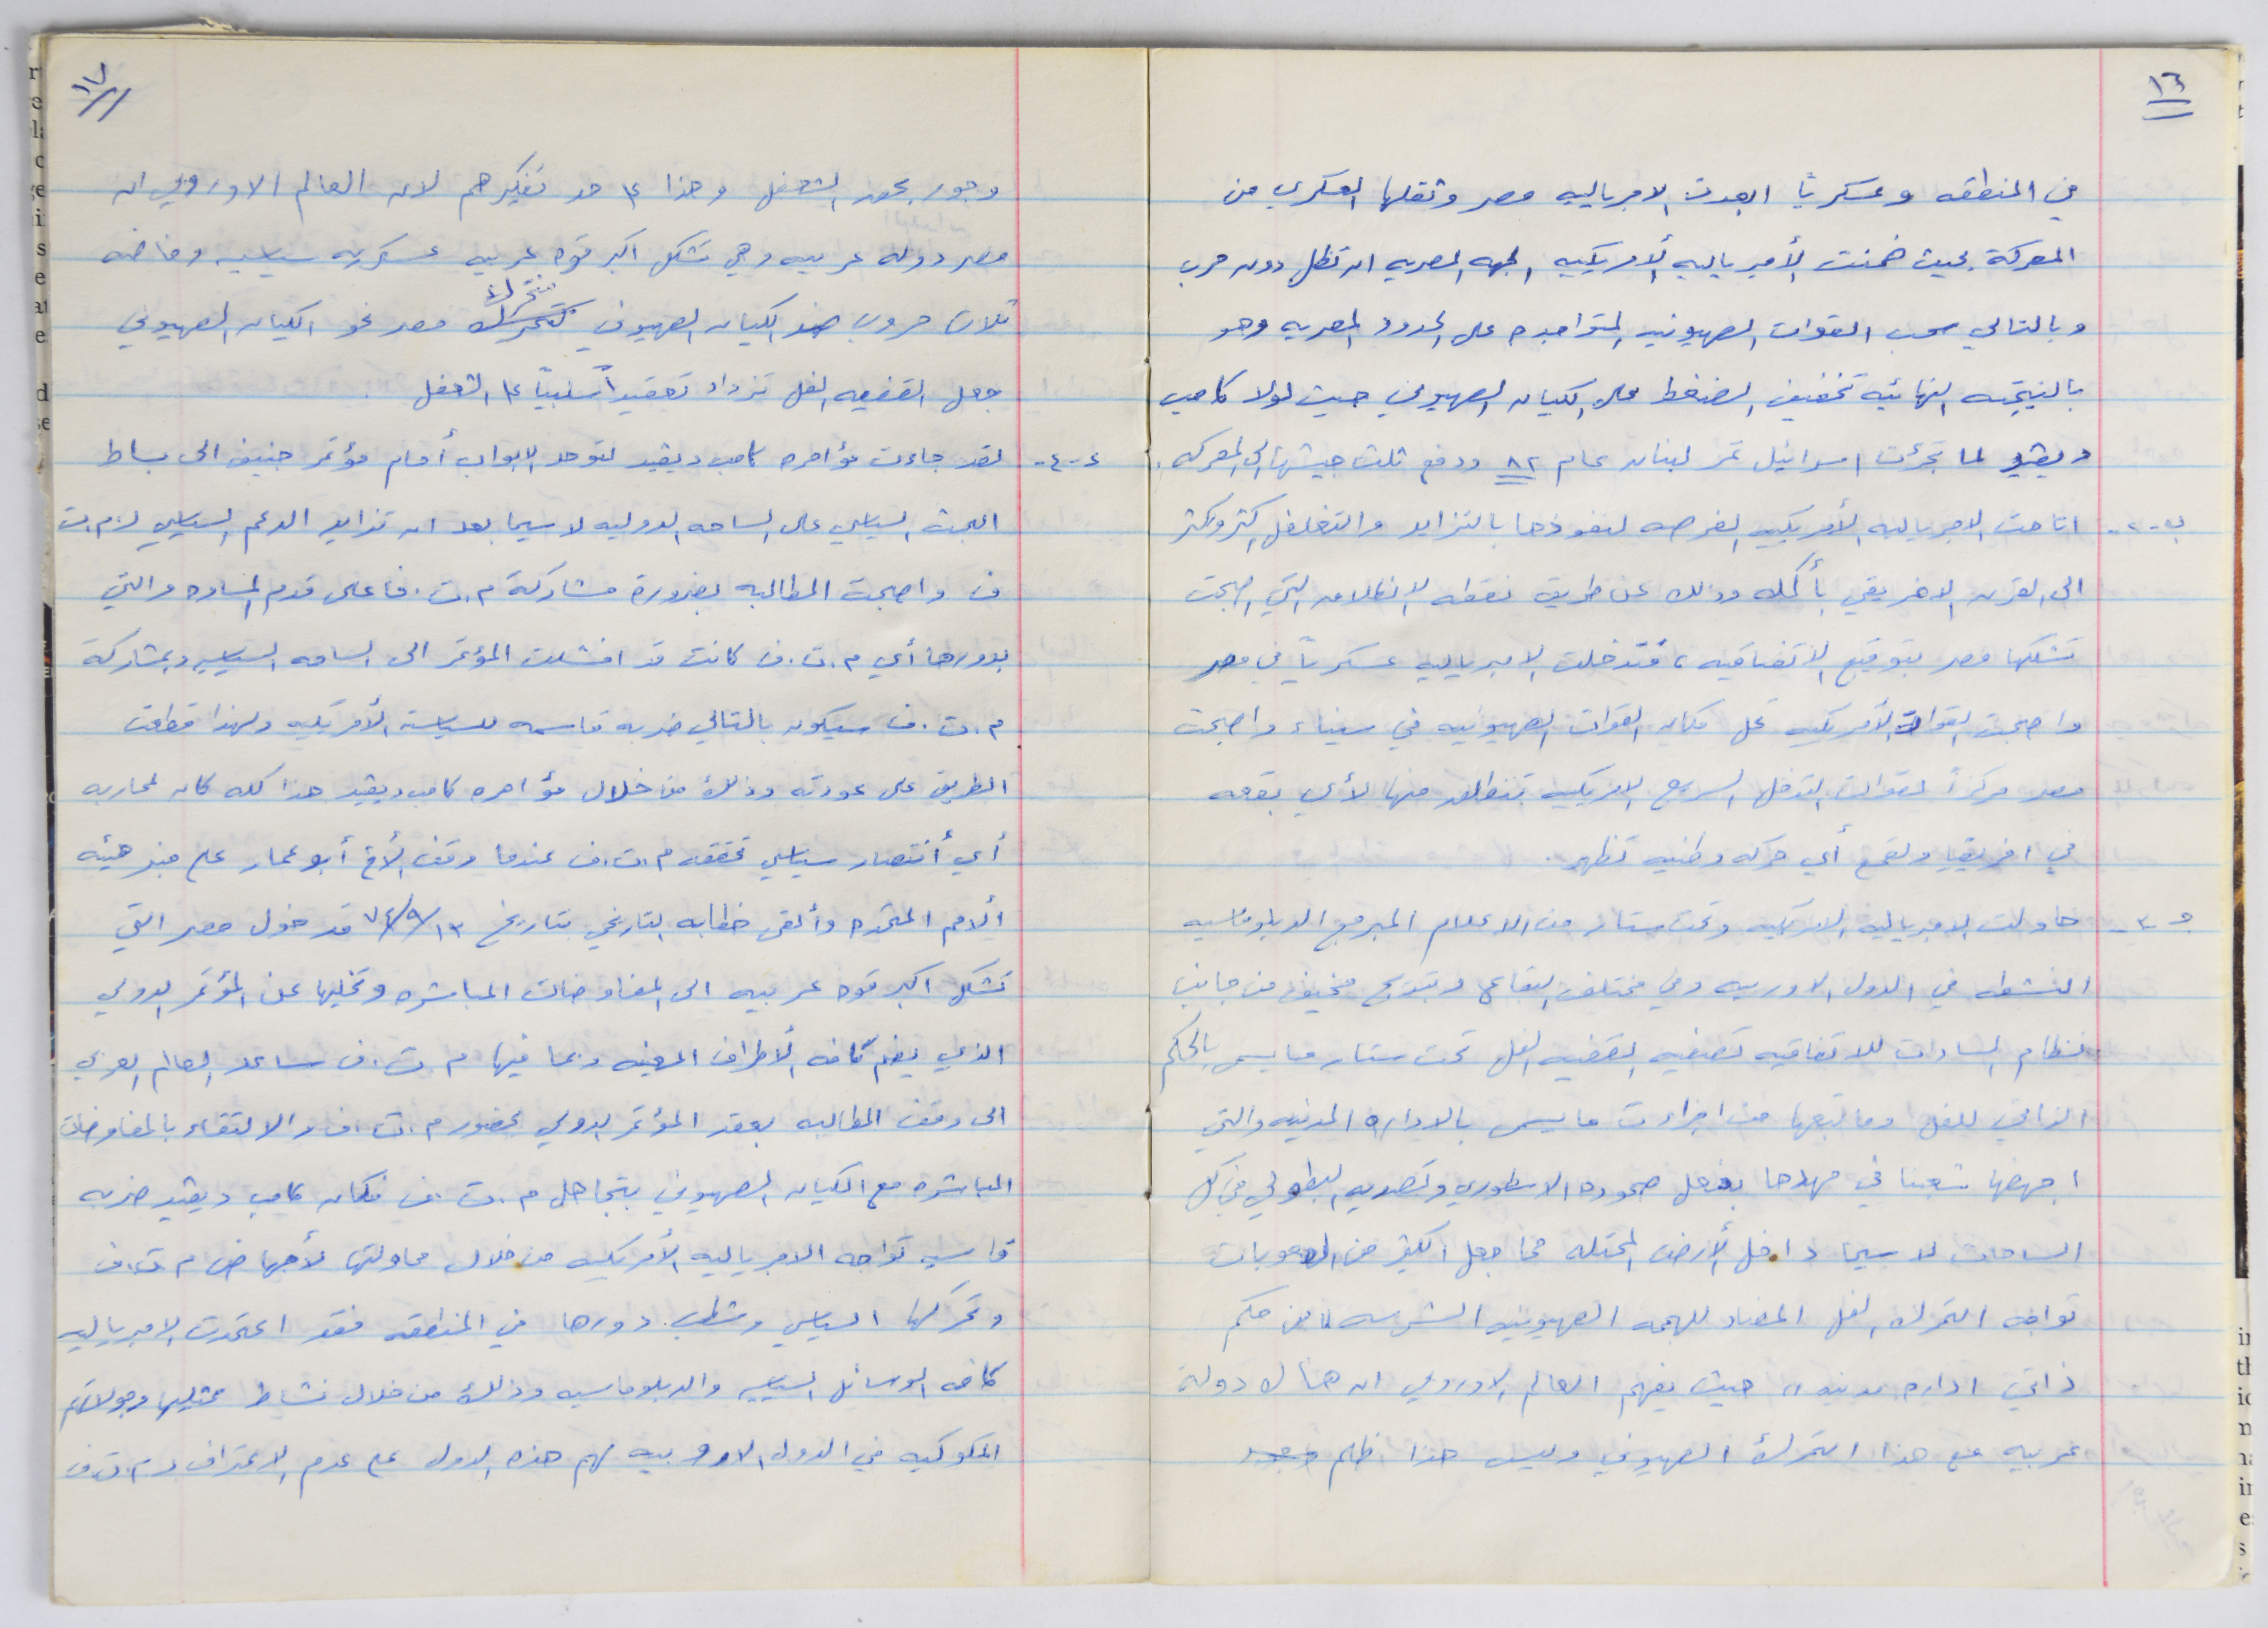 ١٦
في المنطقه وعسكرياً ابعدت الامبرياليه مصر وثقلها العسكري من
المعركة بحيث ضمنت الأمبرياليه الأمريكيه الجبهه المصريه ان تظل دون حرب
وبالتالي سحب القوات الصهيونيه المتواجده على الحدود المصريه وهو
بالنيتجه النهائيه تخفيف الضغط على الكيان الصهيوني حيث لولا كامب
ديفيد لما تجرئت اسرائيل غزو لبنان عام ٨٢ ودفع ثلث جيشها الى المعركه.
ب-٢- اتاحت الامبرياليه الأمريكيه الفرصه لنفوذها بالتزايد والتغلغل اكثر وكثر
الى القرن الافريقي بأكمله وذلك عن طريق نقطه الانطلاق التي اصبحت
تشكلها مصر بتوقيع الاتفاقيه، فتدخلت الامبرياليه عسكرياً في مصر
واصبحت القوات الأمريكيه تحل مكان القوات الصهيونيه في سيناء واصبحت
مصر مركزاً لقوات التدخل السريع الامريكيه تنطلق منها لأي بقعه
في افريقيا ولقمع أي حركه وطنيه تظهر.
ج-٣- حاولت الامبرياليه الامريكيه وتحت ستار من الاعلام المبرمج الدبلوماسيه
النشطه في الدول الاوربيه وفي مختلف البقاع وبتدرج مخيف من جانب
نظام السادات للاتفاقيه تصفيه القضيه الفل تحت ستار ما يسمى بالحكم
الذاتي للفل وما تبعها من اجراءت ما يسمى بالاداره المدنيه والتي
اجهضها شعبنا في مهدها بفعل صموده الاسطوري وتصديه البطولي في كل
الساحات لاسيما داخل الأرض المحتله مما جعل الكثير من الصعوبات
تواجه التحرك الفل المضاد للهجمه الصهيونيه الشرسه "من حكم
ذاتي اداره مدنيه" حيث يفهم العالم الاوروبي ان هناك دولة
عربيه مع هذا التحرك الصهيوني وليس هذا ظلم
١٧
وجور بحق الشعفل وهذا على حد تفكيرهم لان العالم الاوروبي ان
مصر دوله عربيه وهي تشكل اكبر قوه عربيه عسكريه سياسيه وخاضه
ثلاث حروب ضد الكيان الصهيوني فتحرك مصر نحو الكيان الصهيوني
جعل القضيه الفل تزداد تعقيداً سلبياً على الشعفل.
د-٤- لقد جاءت مؤامره كامب ديفيد لتوصد الابواب أمام مؤتمر جنيف الى بساط
البحث السياسي على الساحه الدوليه لاسيما بعد ان تزايد الدعم السياسي ل م.ت
ف واصبحت المطالبه بضرورة مشاركة م.ت.ف على قدم المساوه والتي
بدورها أي م.ت.ف كانت قد افشلت المؤتمر الى الساحه السياسيه وبمشاركة
م.ت.ف سيكون بالتالي ضربه قاسمه للسياسة الأمريكيه ولهذا قطعت
الطريق على عودته وذلك من خلال مؤامره كامب ديفيد هذا كله كان لمحاربه
أي أنتصار سياسي تحققه م.ت.ف عندما وقف الأخ أبو عمار على منبر هيئه
ألامم المتحده وألقى خطابه التاريخي بتاريخ ٧٤/٩/١٣ قد خول مصر التي
تشكل اكبر قوه عربيه الى المفاوضات المباشره وتخليها عن المؤتمر الدولي
الذي يضم كافه الأطراف المعنيه وبما فيها م.ت.ف ساعد العالم العربي
الى وقف المطالبه بعقد المؤتمر الدولي بحضور م.ت.ف والالتقاء بالمفاوضات
المباشره مع الكيان الصهيوني بتجاهل م.ت.ف فكان كامب ديفيد ضربه
قاسيه تواجه الامبرياليه الأمريكيه من خلال محاولتها لأجهاض م.ت.ف
وتحركها السياسي وشطب دورها في المنطقه فقد اعتمدت الامبرياليه
كافه الوسائل السياسيه والدبلوماسيه وذلك من خلال نشاط ممثليها وجولاتهم
المكوكيه في الدول الاوروبيه لهم هذه الدول على عدم الاعتراف ب م.ت.ف